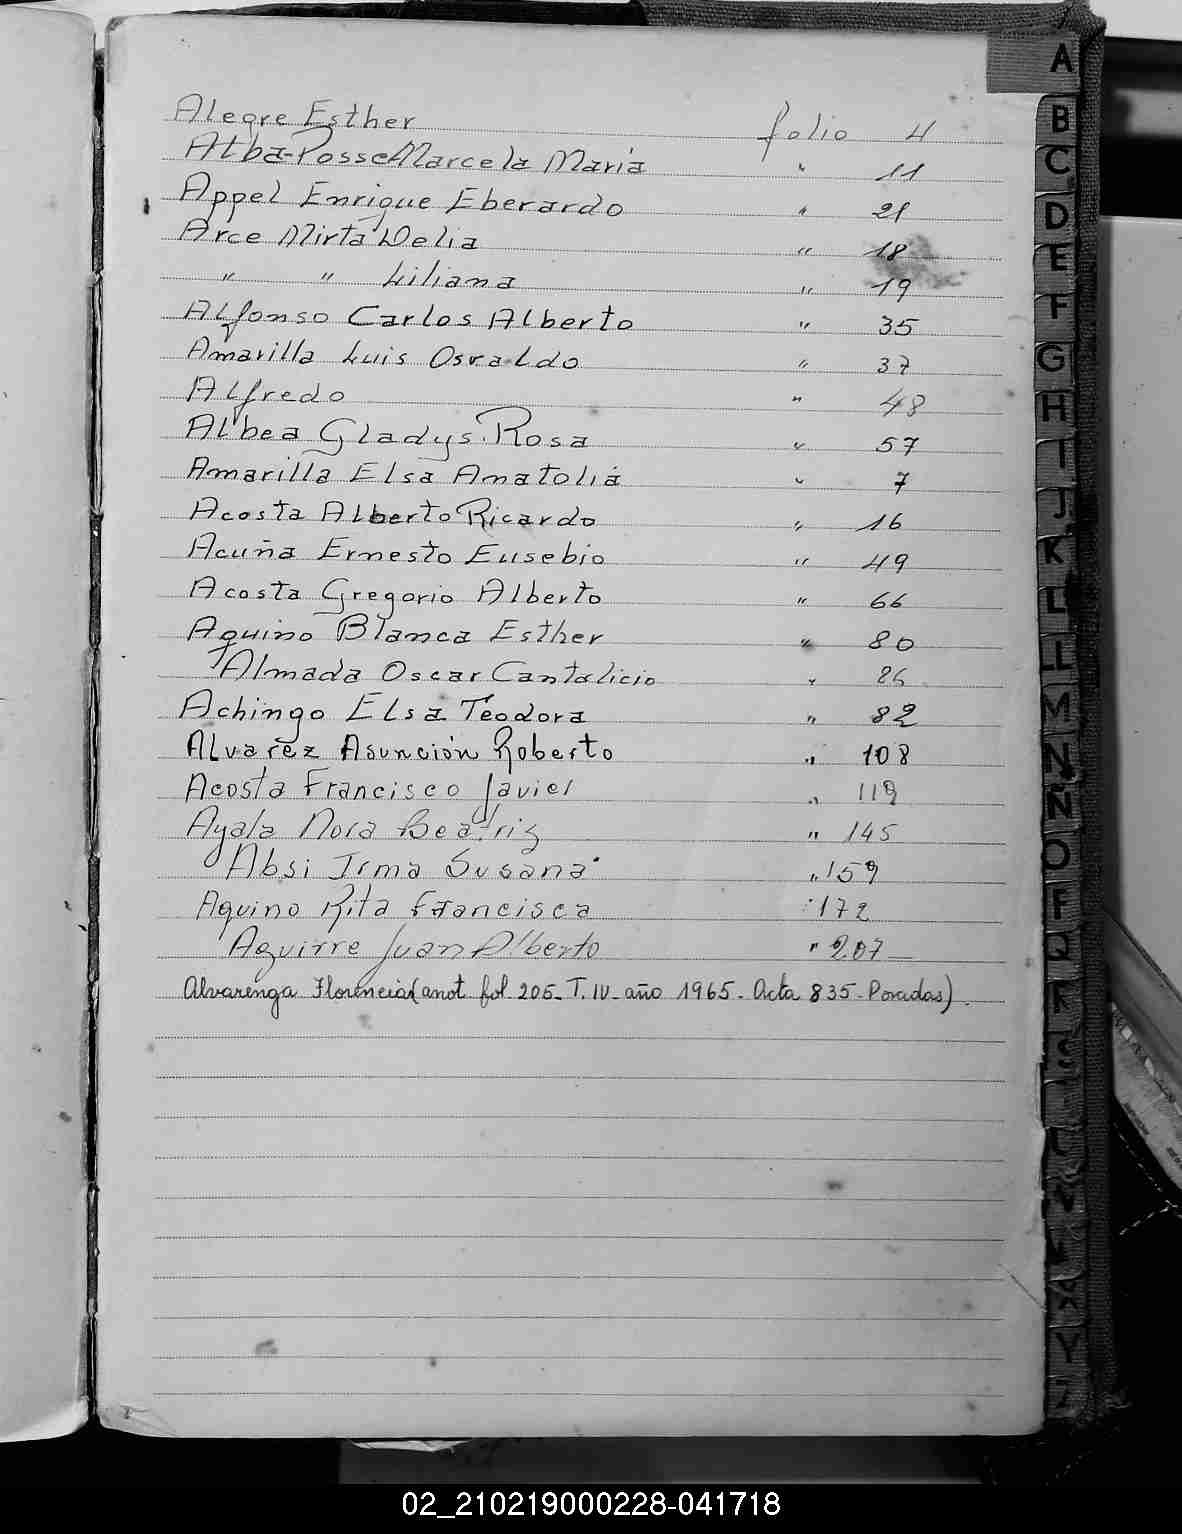 Alegre Esther folio 4
Alba-Posse Marcela Maria " 11
Appel Enrique Eberardo " 21
Arce Mirta Delia " 18
" " Liliana " 19
Alfonso Carlos Alberto " 35
Amarilla Luis Osvaldo " 37
Alfredo " 48
Albea Gladys Rosa " 57
Amarilla Elsa Anatolia " 7
Acosta Alberto Ricardo " 16
Acuña Ernesto Eusebio " 49
Acosta Gregorio Alberto " 66
Aquino Blanca Esther " 80
Almada Oscar Cantalicio "
Achingo Elsa Teodora " 82
Alvarez Asunción Roberto " 108
Acosta Francisco Javier " 119
Ayala Nora Beatriz " 145
Absi Irma Susana " 159
Aquino Rita Francisca " 172
Aguirre Juan Alberto " 207
Alvarenga Florencia (anot fol. 205. T. IV. año 1965. Acta 835. Posadas).
A
B
C
D
E
F
G
H
I
J
K
L
M
N
Ñ
O
P
Q
R
S
Y
02_210219000228-041718